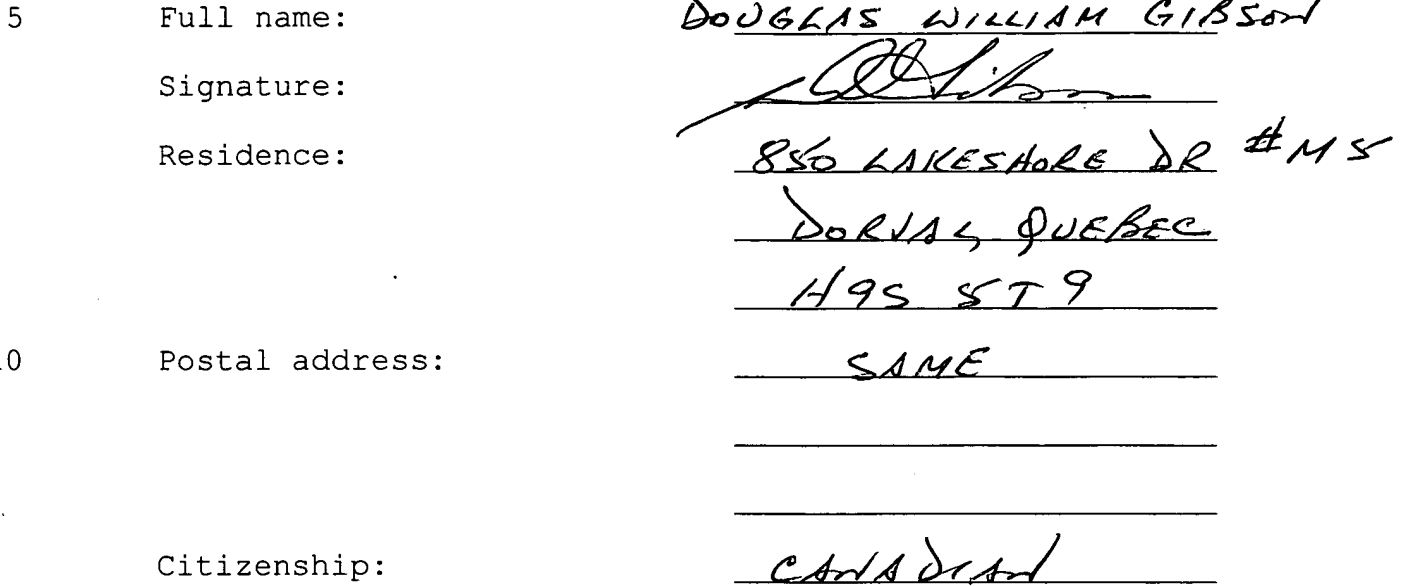 5 Full name: DOUGLAS WILLIAM GIBSON
Signature:
Residence: 850 LAKESHORE DR #M5
DORVAL, QUEBEC
H9S 5T9
0 Postal address: SAME
Citizenship: CANADIAN